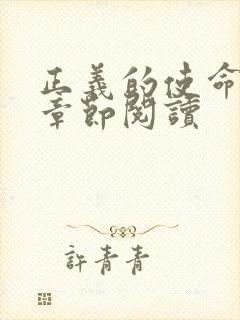 正義的使命
章節閱讀
許青青